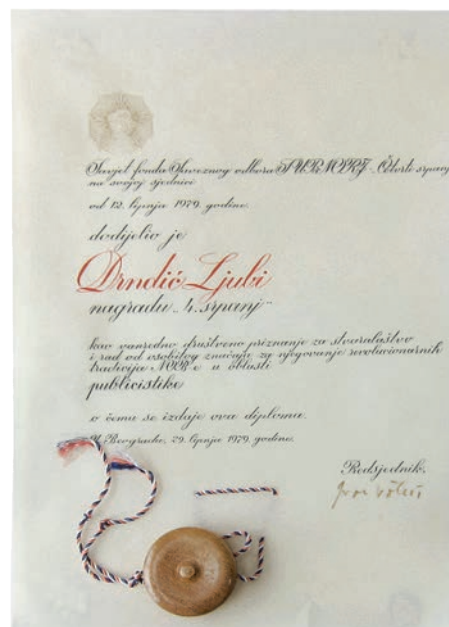 Savjet fonda Saveznog odbora SUBNORJ - Četvrti srpanj
na svojoj sjednici
od 12. lipnja 1979. godine.
dodijelio je
Drndić Ljubi
nagradu „4. srpanj“
kao vanredno društveno priznanje za stvaralaštvo
i rad od osobitog značaja za njegovanje revolucionarnih
tradicija NOB-e u oblasti
publicistike
o čemu se izdaje ova diploma.
U Beogradu, 29. lipnja 1979. godine.
Predsjednik,